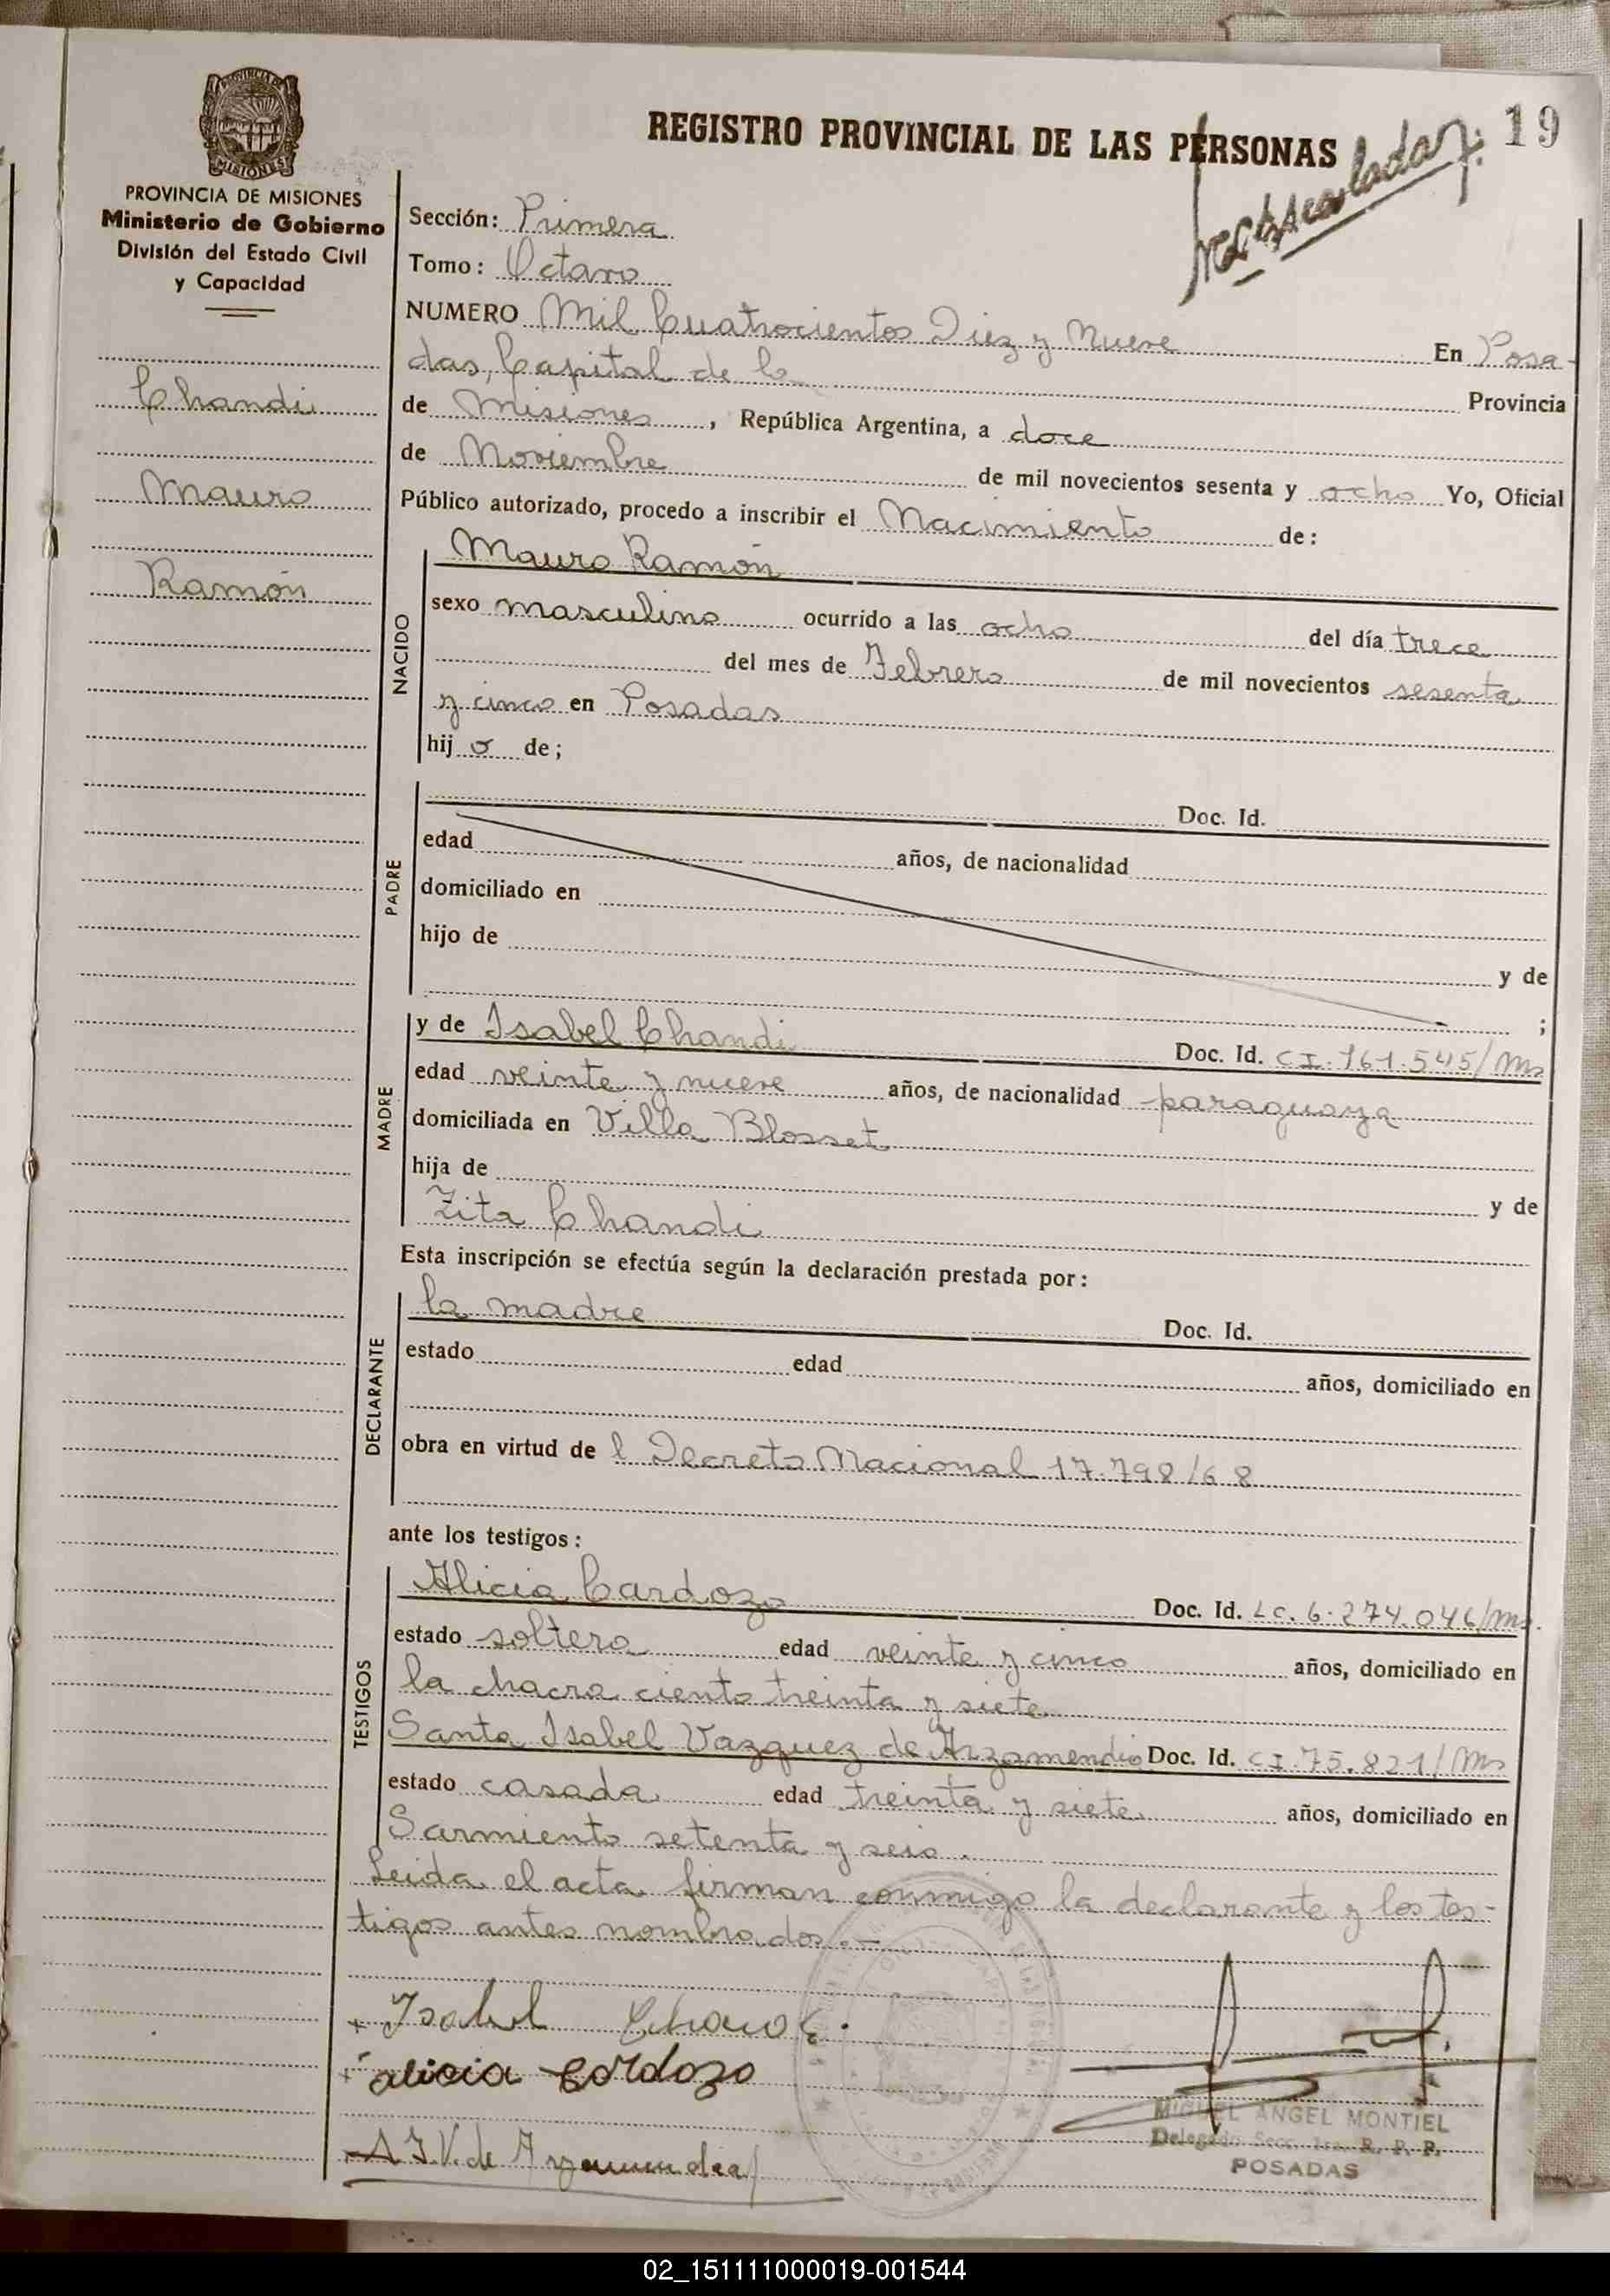 REGISTRO PROVINCIAL DE LAS PERSONAS
19
PROVINCIA DE MISIONES
Ministerio de Gobierno
División del Estado Civil
y Capacidad
Chandi
Mauro
Ramón
Sección: Primera
Tomo: Octavo
NUMERO Mil Cuatrocientos Diez y Nueve En Posa-
das, Capital de la Provincia
de Misiones, República Argentina, a doce
de Noviembre de mil novecientos sesenta y ocho Yo, Oficial
Público autorizado, procedo a inscribir el Nacimiento de:
NACIDO
Mauro Ramón
sexo masculino ocurrido a las ocho del día trece
del mes de Febrero de mil novecientos sesenta
y cinco en Posadas
hij o de;
PADRE
Doc. Id.
edad años, de nacionalidad
domiciliado en
hijo de y de
;
MADRE
y de Isabel Chandi Doc. Id. CI.161.545/Ms
edad veinte y nueve años, de nacionalidad paraguaya
domiciliada en Villa Blosset
hija de y de
Zita Chandi
Esta inscripción se efectúa según la declaración prestada por:
DECLARANTE
la madre Doc. Id.
estado edad años, domiciliado en
obra en virtud de l Decreto Nacional 17.798/68
ante los testigos:
TESTIGOS
Alicia Cardozo Doc. Id. LC. 6.274.046/Ms.
estado soltera edad veinte y cinco años, domiciliado en
la chacra ciento treinta y siete
Santa Isabel Vazquez de Arzamendia Doc. Id. CI.75.821/Ms
estado casada edad treinta y siete años, domiciliado en
Sarmiento setenta y seis.
Leida el acta firman conmigo la declarante y los tes-
tigos antes nombrados.-
Isabel
alicia Cardozo
V. de Arzamendia
MIGUEL ANGEL MONTIEL
Delegado Secc. 1ra. R. P. P.
POSADAS
02_151111000019-001544